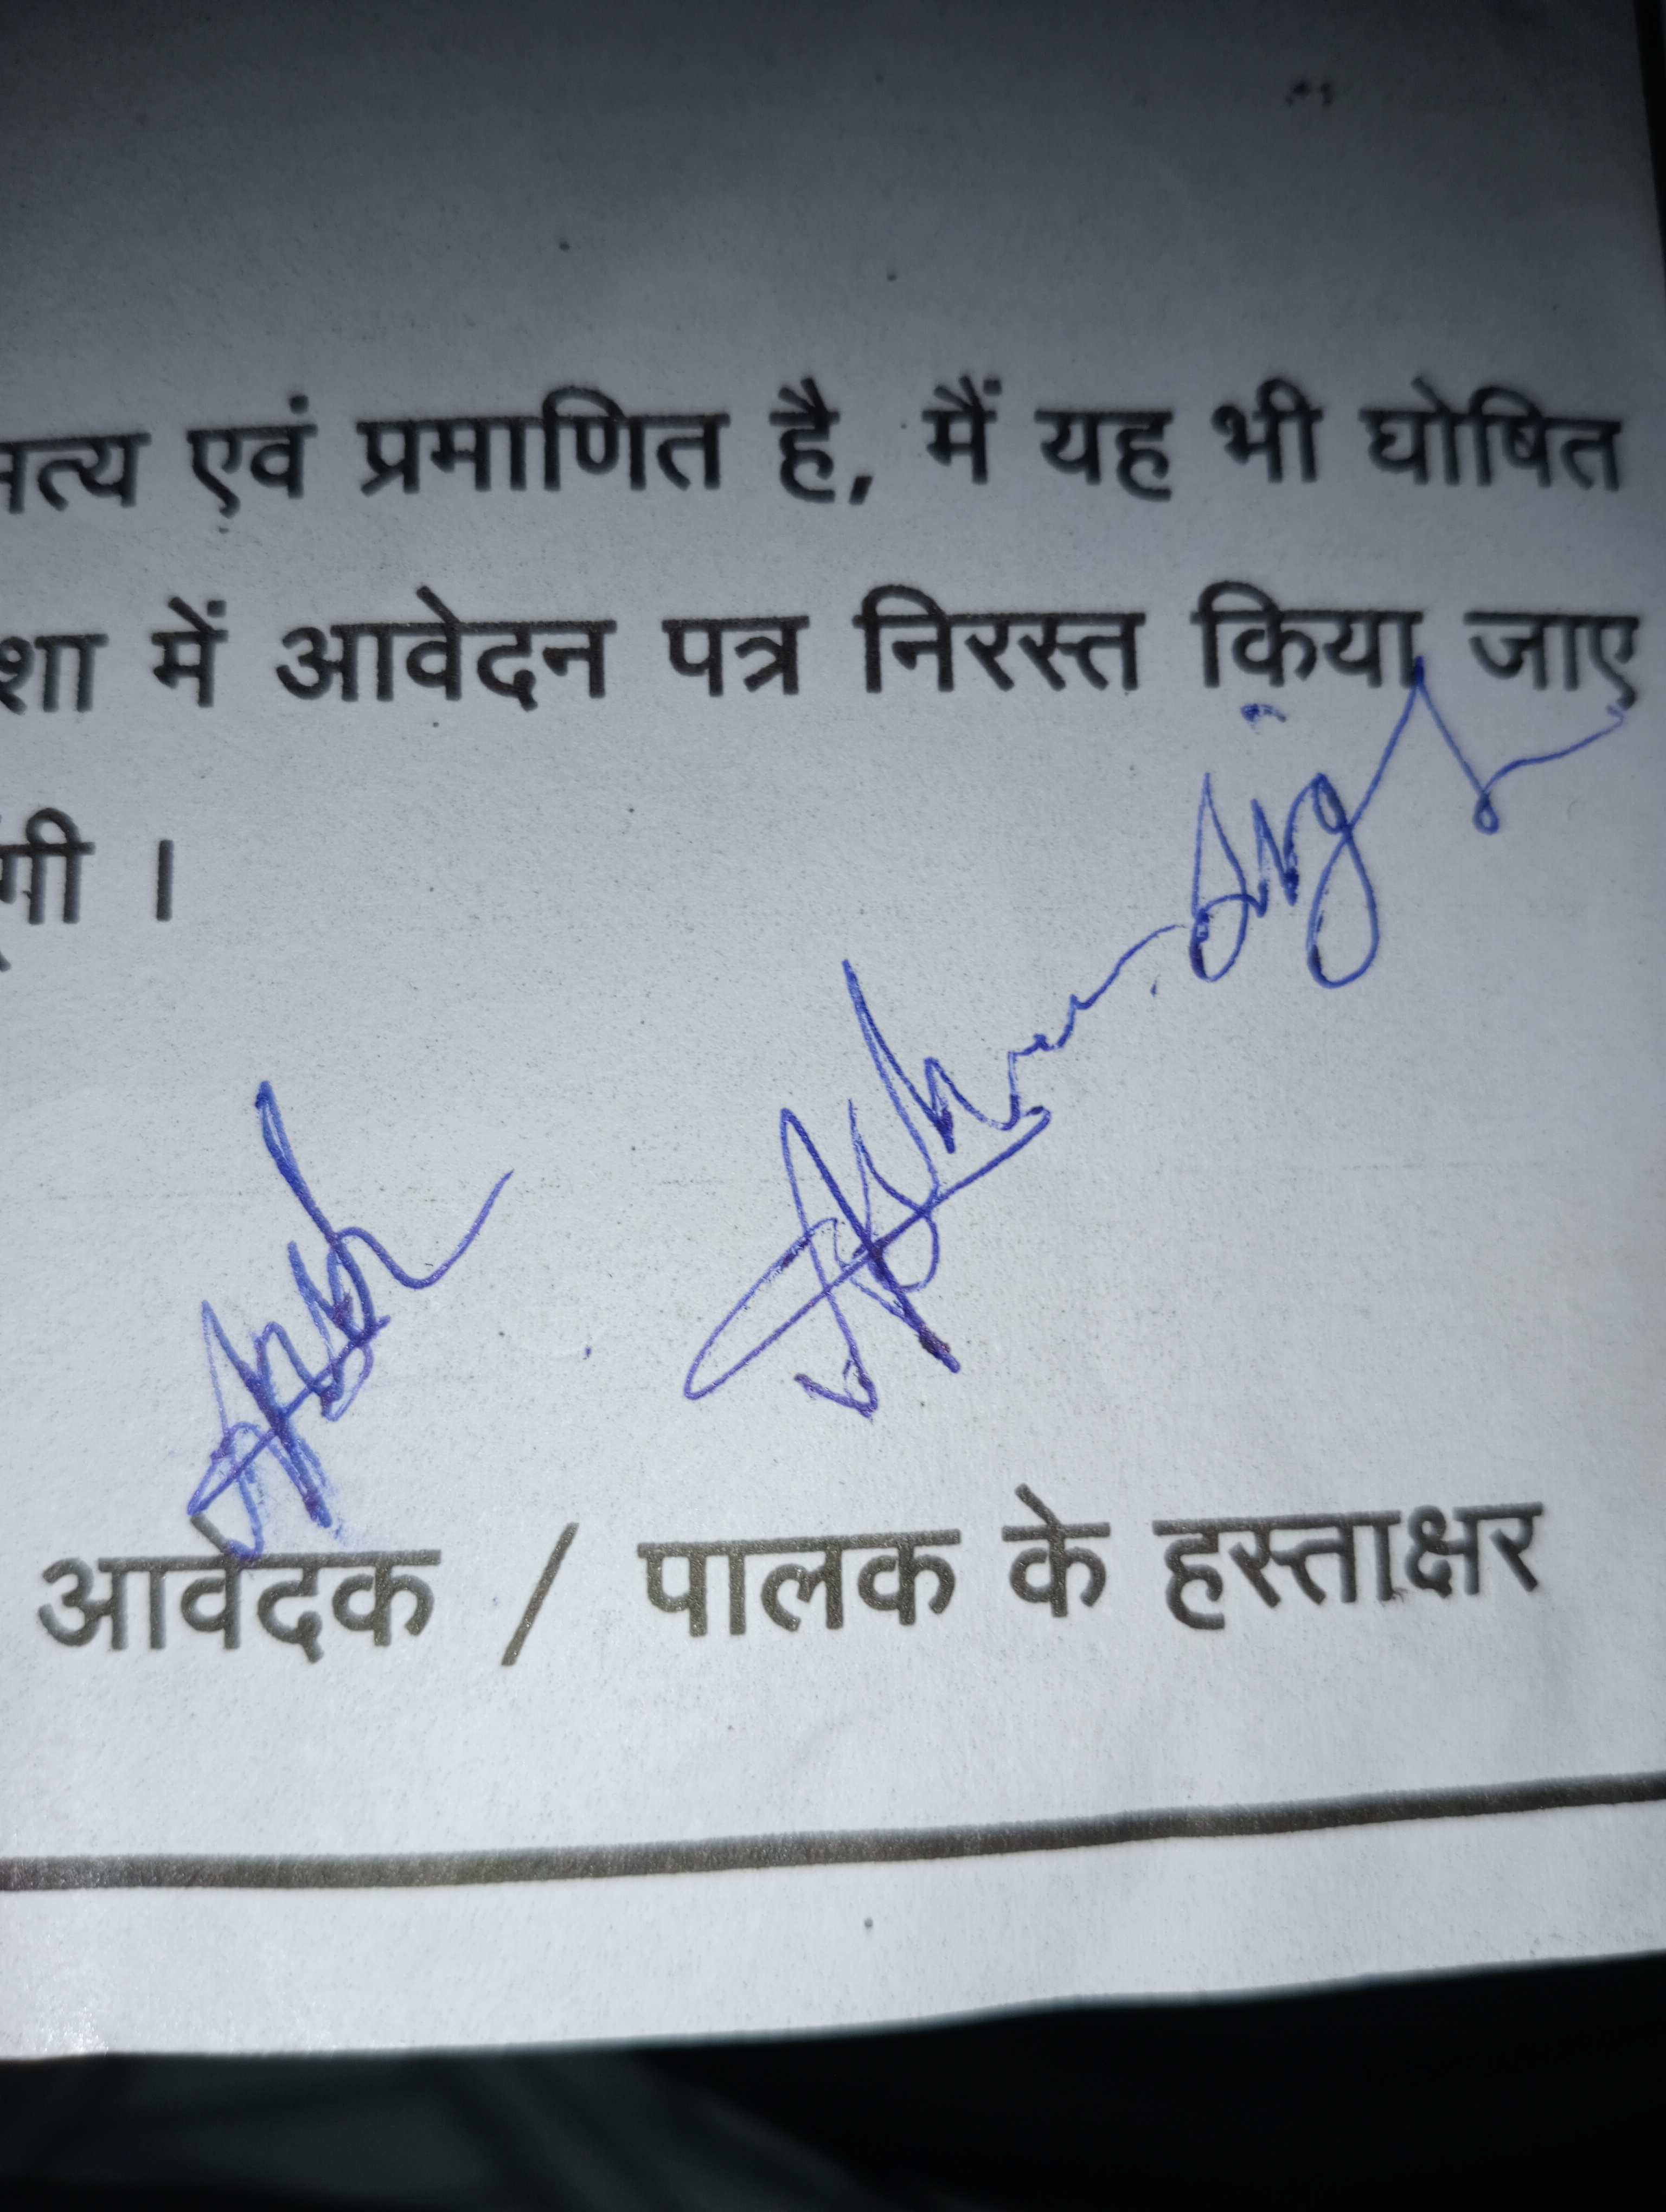 सत्य एवं प्रमाणित है, मैं यह भी घोषित
में आवेदन पत्र निरस्त किया जाए
।
Singh
आवेदक / पालक के हस्ताक्षर